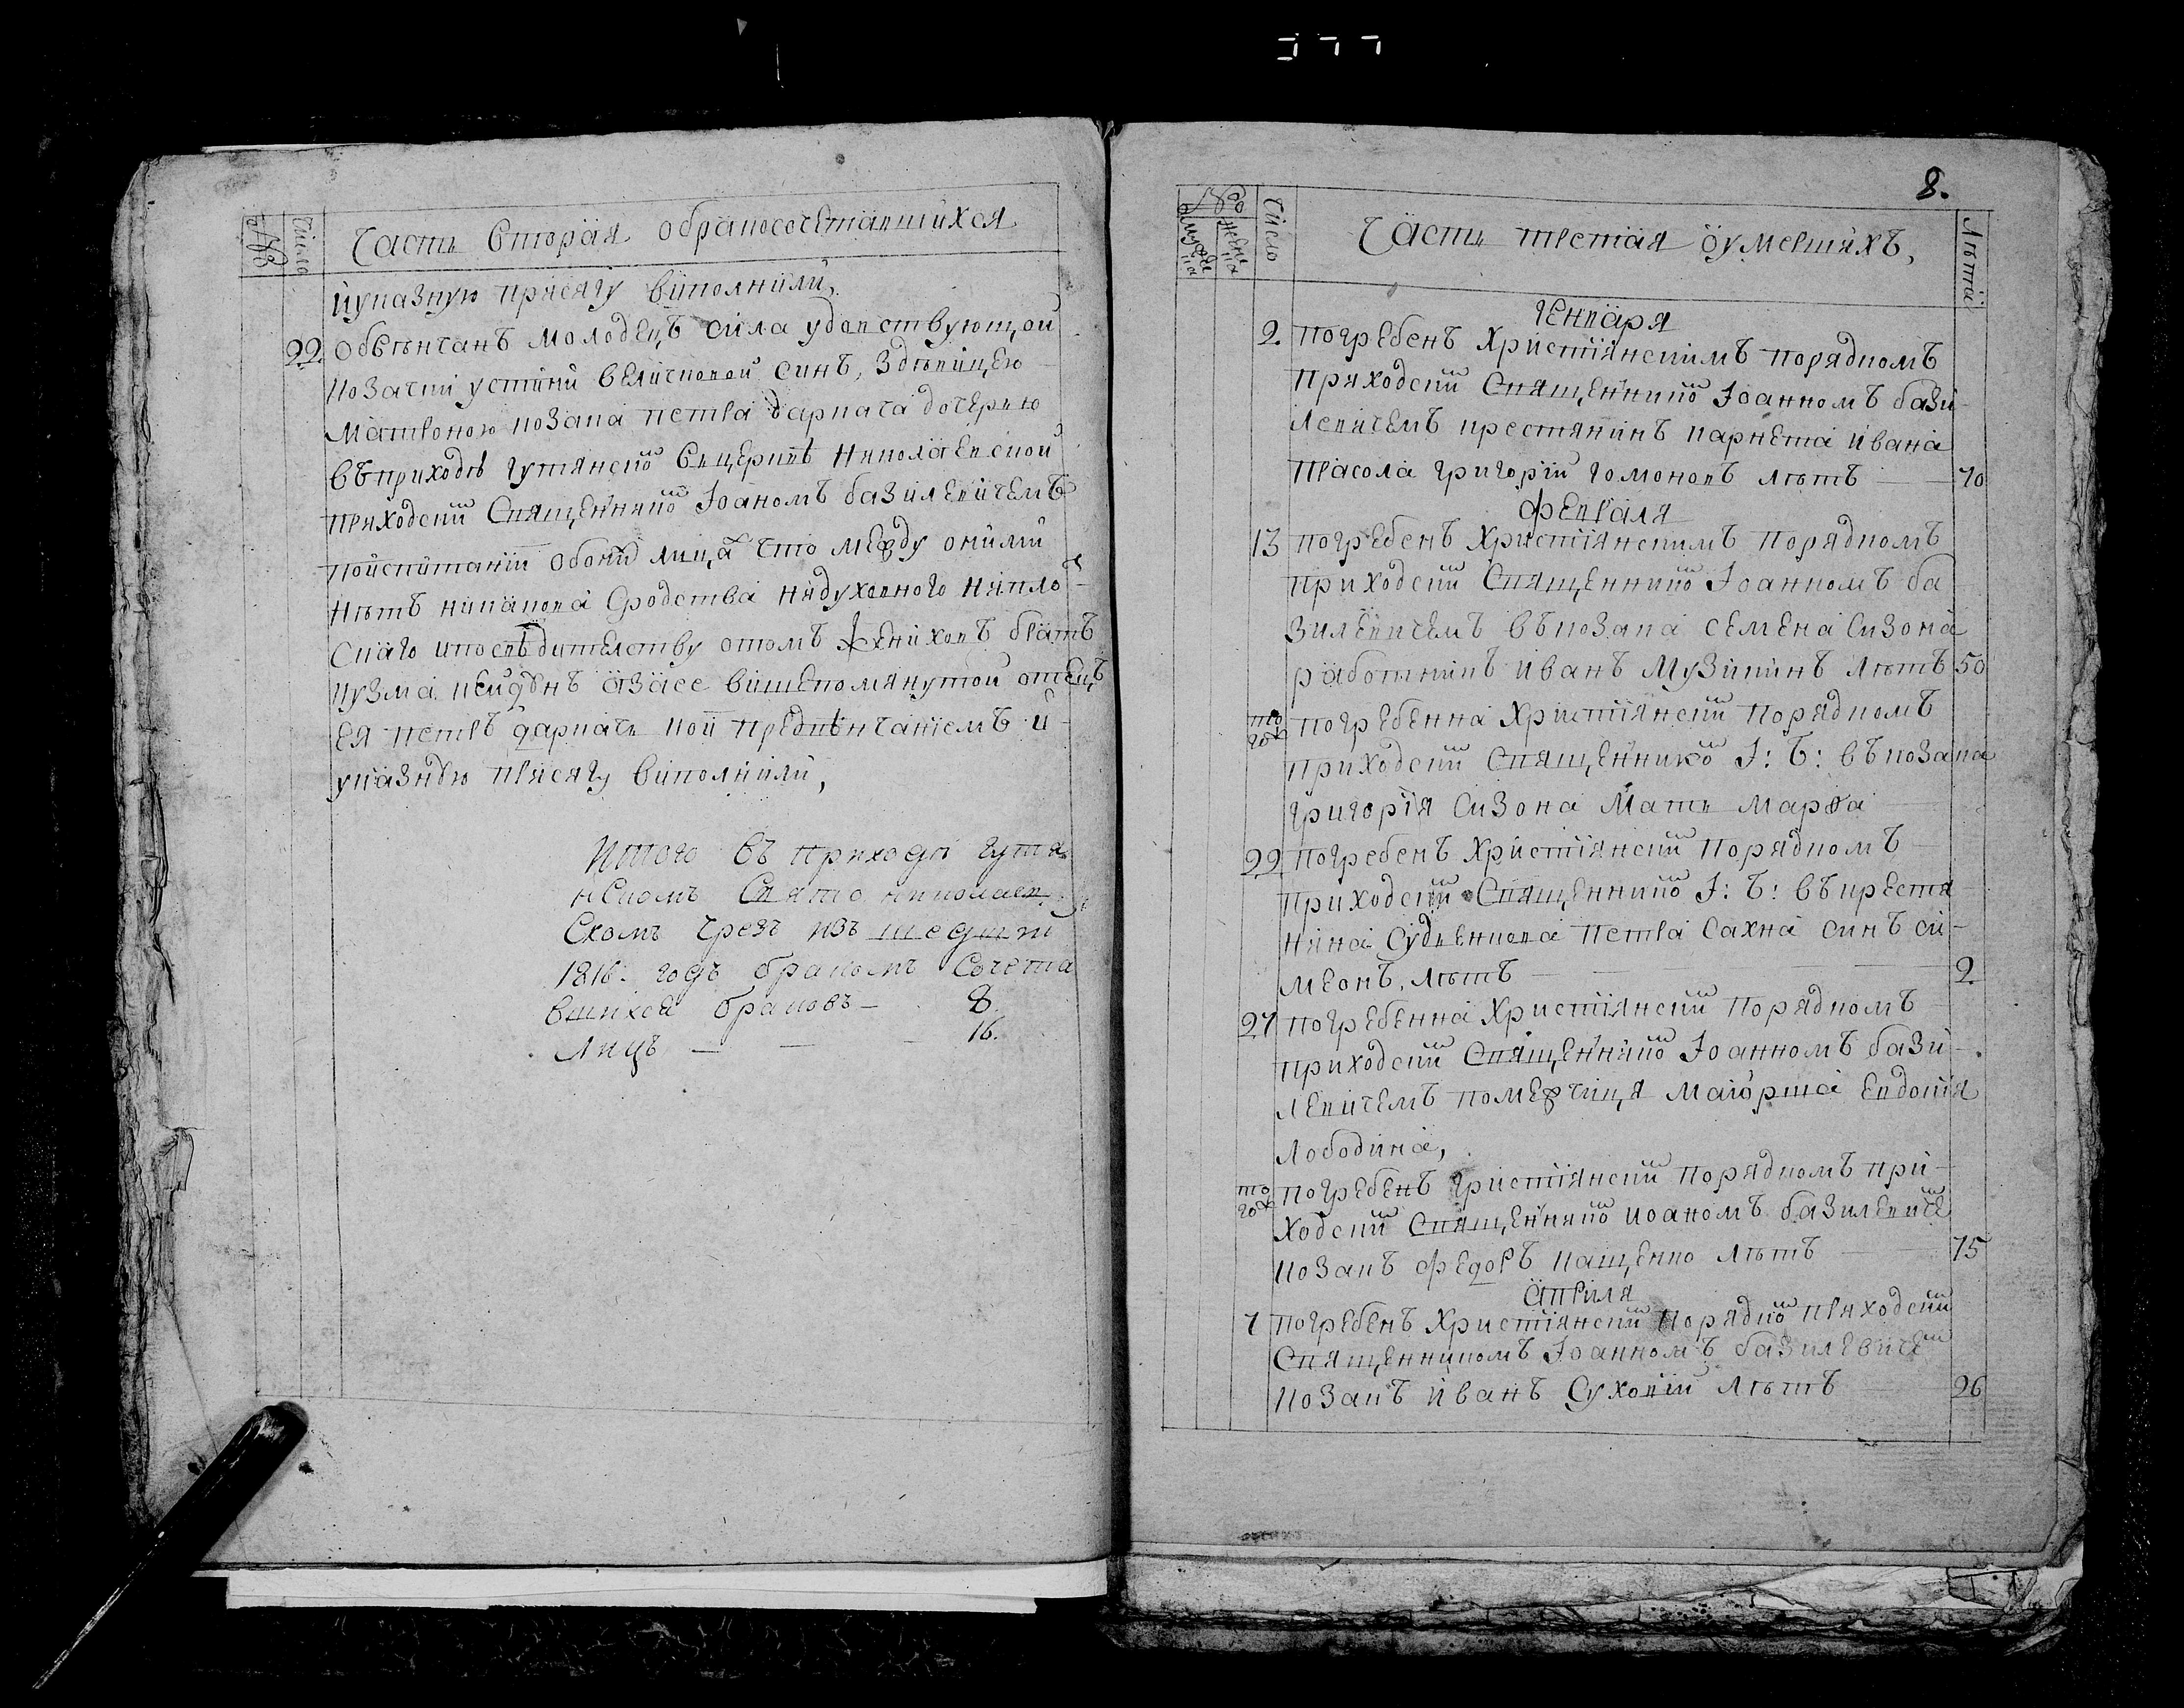 №
Число
Часть вторая обракосочетавшихся
и указную присягу виполнили,
22. Обвѣнчанъ молодецъ Сила удовствующой
козачки устини величковой синъ, здѣвицею
матроною козака петра дарнача дочерью
въ приходѣ гутянской вцеркви николаевской
приходским Священником Іоаномъ базилевичемъ
поиспитаніи обоих лицъ что между оними
нѣтъ никакова сродства ни духовного ни пло-
скаго и по свѣдителству отомъ жениховъ братъ
кузма азасе вишепомянутой отецъ
ея петръ дарначъ предвѣнчаніемъ и
указную присягу виполнили,
Итого въ приходѣ гутя
нскомъ Свято николаев
скомъ чрезъ изъ шедшти
1816. годъ бракомъ Сочета
вшихся браковъ — 8.
Лицъ — — — 16.
8.
Число
Часть третая о умершихъ,
Лѣта
Генваря
2. погребенъ Христіянскимъ порядкомъ
приходским Священником Іоанномъ бази-
левичемъ крестянинъ карнета ивана
трасола григорій гомоновъ лѣтъ — 70
Февраля
13 погребенъ Христіянскимъ порядкомъ
приходским Священником Іоанномъ ба
зилевичемъ въ козака семена Сизона
работникъ иванъ Музикинъ лѣтъ 50
то гож погребенна Христіянским порядкомъ
приходским Священником І: Б: въ козака
григорія Сизона мать марѳа
22 погребенъ Христіянским порядкомъ
приходским Священником І: Б: въ крестя
нина Судѣенкова петра Сахна синъ си-
меонъ, лѣтъ — — 2
27 погребенна Христіянским порядкомъ
приходским Священником Іоанномъ бази-
левичемъ помещиця маіорша Евдокія
Лободина,
то гож погребенъ христіянским порядкомъ при-
ходским Священником иоаномъ базилевиче
козакъ федоръ кащенко лѣтъ — 75
Априля
7 погребенъ Христіянским порядком приходским
Священникомъ Іоанномъ базилевичем
козакъ иванъ Суховій лѣтъ 26